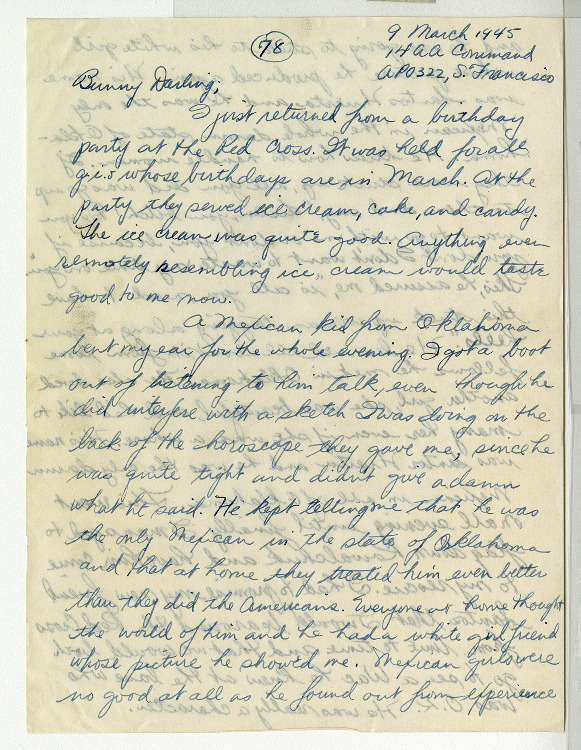 78
9 March 1945
14 AA Command
APO322, S. Francisco
Bunny Darling;
I just returned from a birthday
party at the Red Cross. It was held for all
g.i.s whose birthdays are in March. At the
party they served ice cream, cake, and candy.
The ice cream was quite good. Anything even
remotely resembling ice cream would taste
good to me now.
A Mexican kid from Oklahoma
bent my ear for the whole evening. I got a boot
out of listening to him talk, even though he
did interfere with a sketch I was doing on the
back of the horoscope they gave me, since he
was quite tight and didn't give a damn
what he said. He kept telling me that he was
the only Mexican in the state of Oklahoma
and that at home they treated him even better
than they did the Americans. Everyone at home thought
the world of him and he had a white girl friend
whose picture he showed me. Mexican girls were
no good at all as he found out from experience